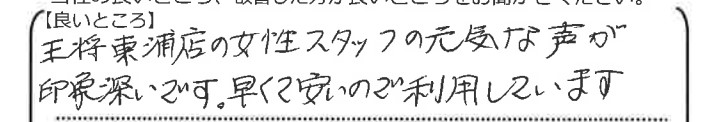 【良いところ】
王将東浦店の女性スタッフの元気な声が
印象深いです。早くて安いので利用しています